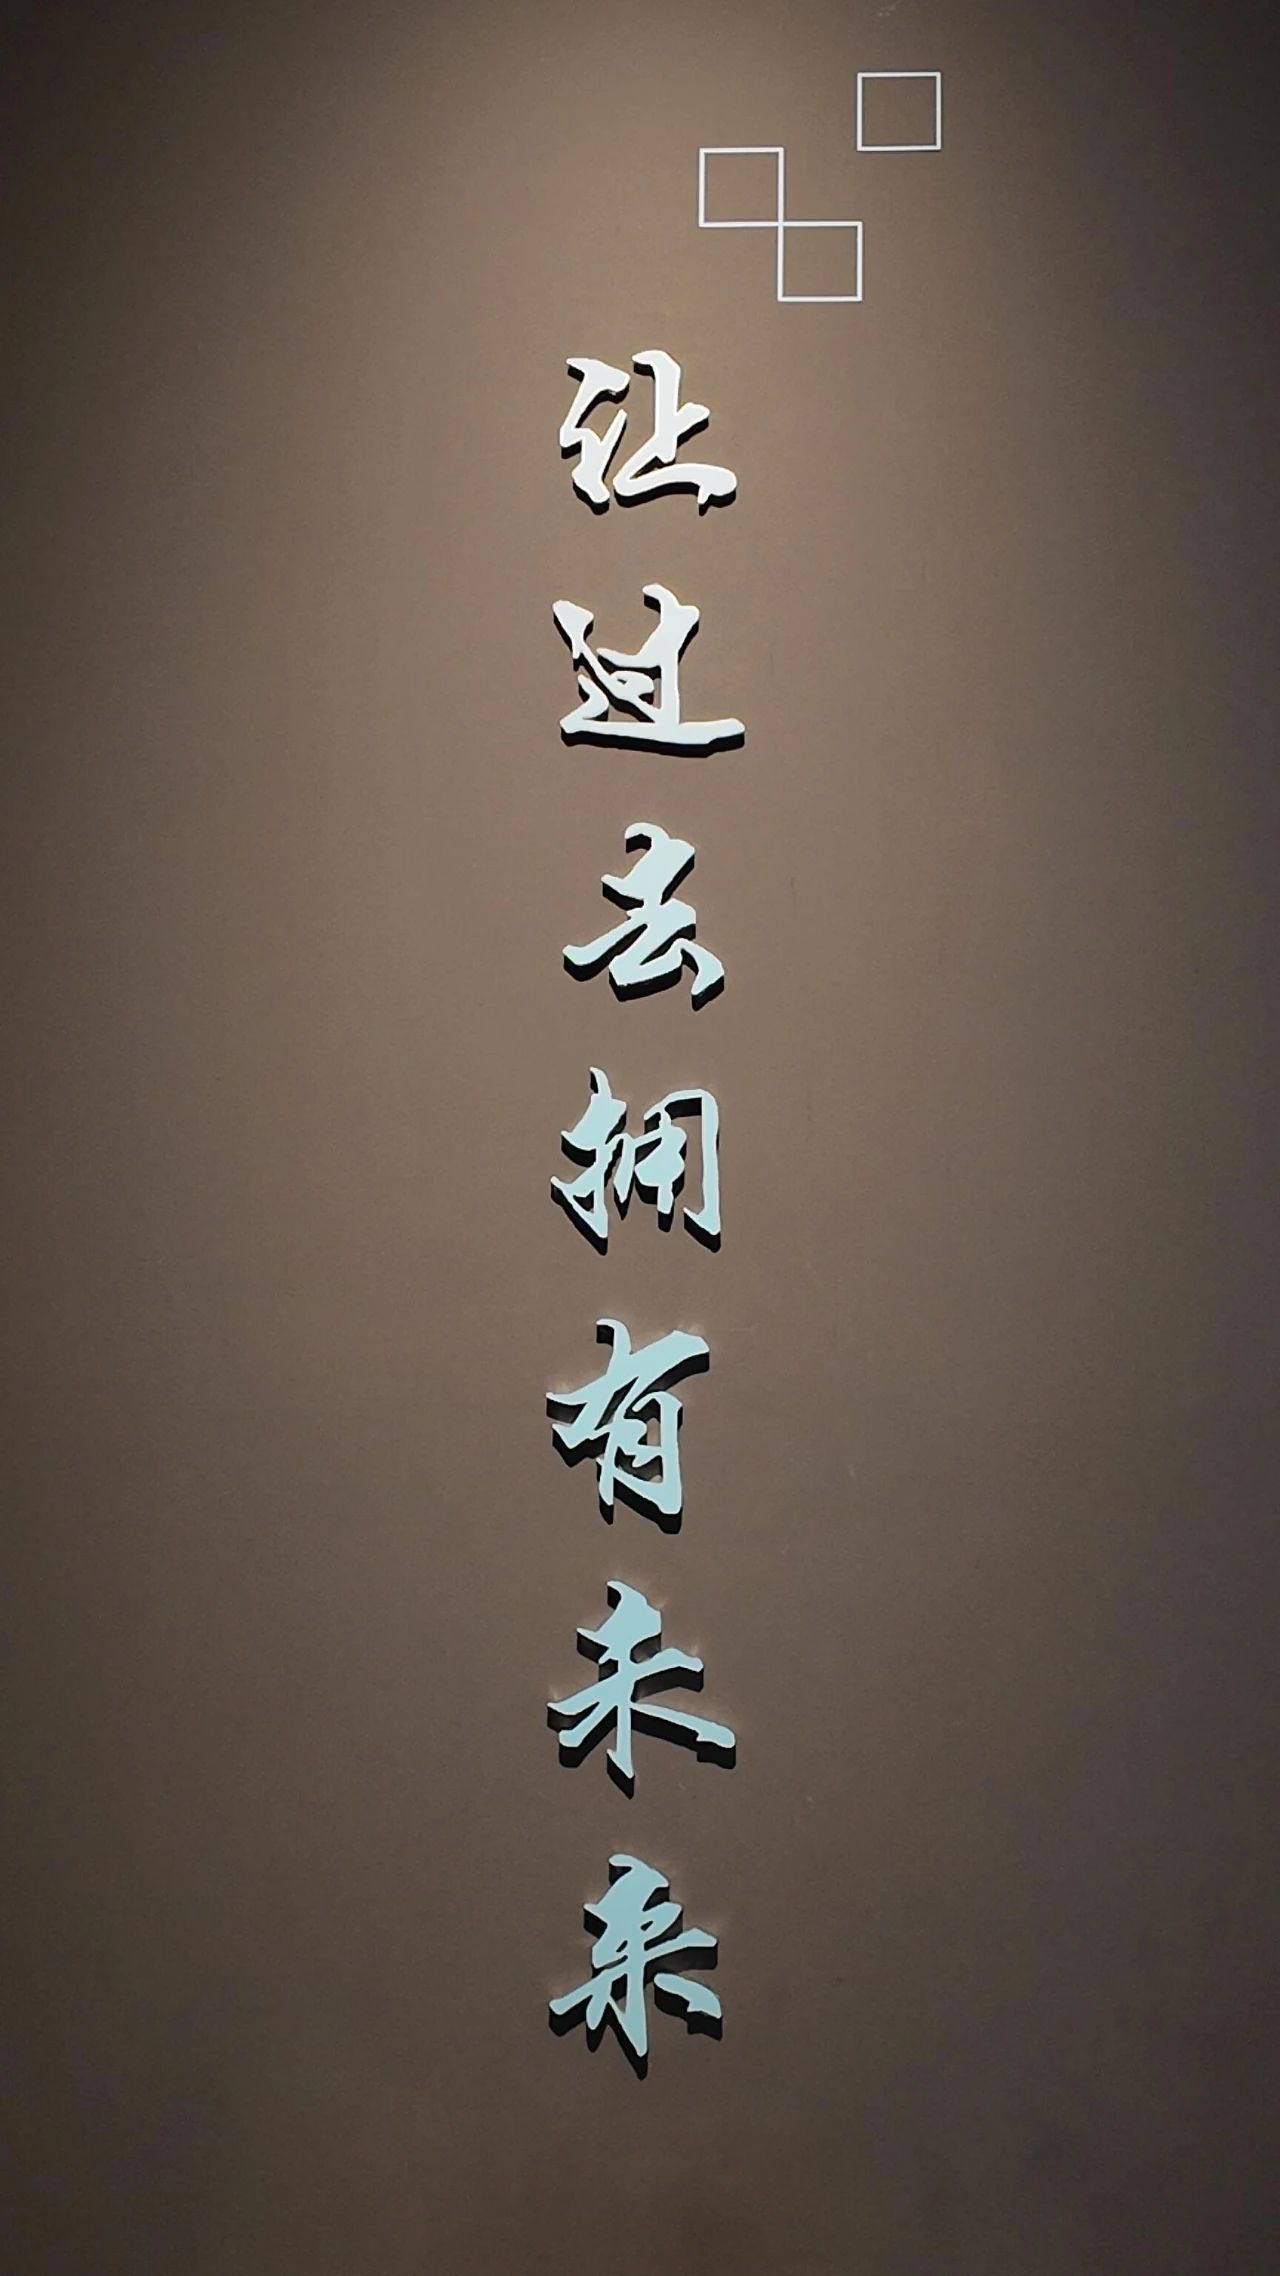 让过去拥有未来